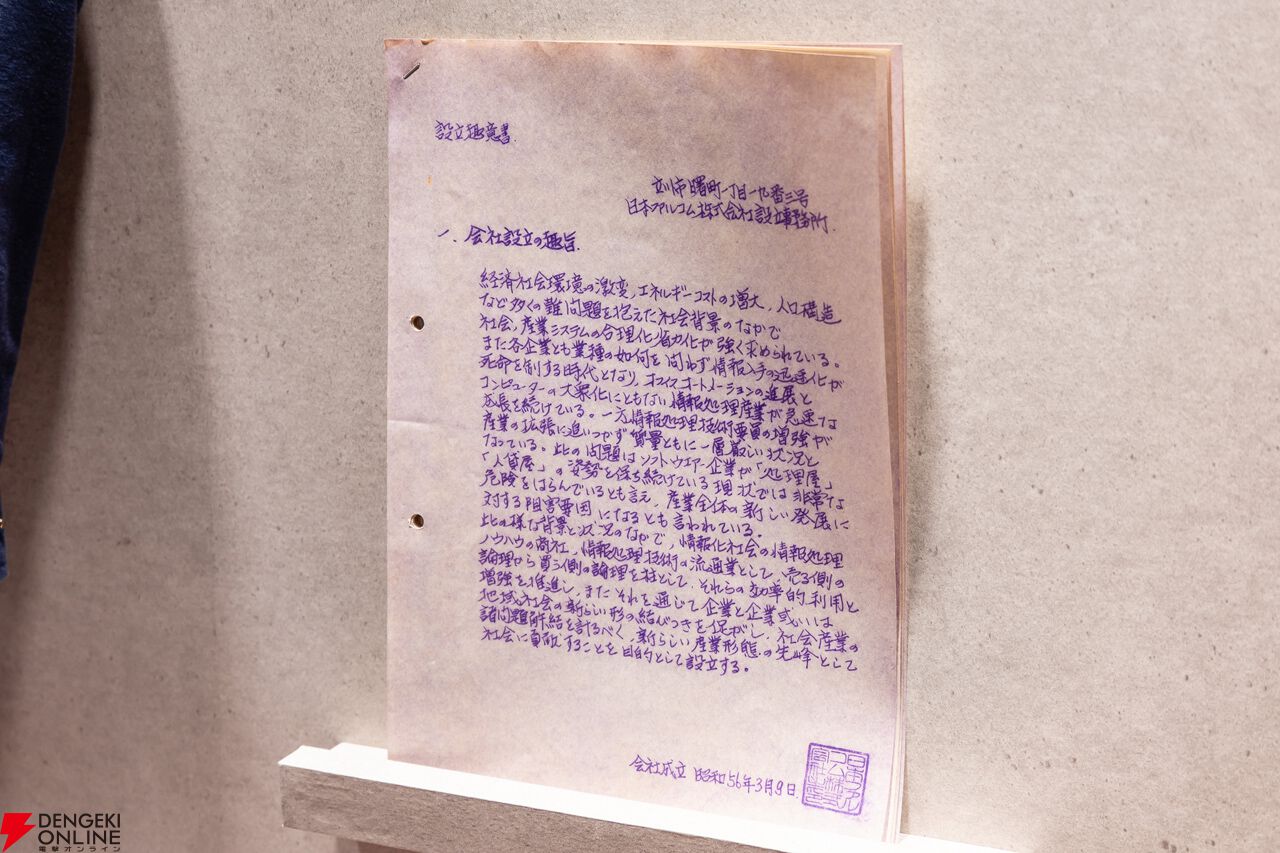 設立趣意書.
立川市曙町一丁目一九番三号
日本ファルコム株式会社設立事務所.
一. 会社設立の趣旨.
経済社会環境の激変,エネルギーコストの増大,人口構造
など多くの難問題を抱えた社会背景のなかで
社会,産業システムの合理化,省力化が強く求められている。
また各企業とも業種の如何を問わず情報入手の迅速化が
死命を制する時代となり,オフィスオートメーションの進展と
コンピューターの大衆化にともない,情報処理産業が急速な
成長を続けている。一方情報処理技術要員の増強が
産業の拡張に追いつかず質量ともに一層厳しい状況と
なっている。此の問題はソフトウエアー企業が「処理屋」
「人貸屋」の姿勢を保ち続けている現状では非常な
危険をはらんでいるとも言え,産業全体の新しい発展に
対する阻害要因になるとも言われている。
此の様な背景と状況のなかで,情報化社会の情報処理
ノウハウの商社,情報処理技術の流通業として,売る側の
論理から買う側の論理を柱として,それらの効率的利用と
増強を推進し,またそれを通じて企業と企業或いは
地域社会の新らしい形の結びつきを促がし,社会産業の
諸問題解結を計るべく,新らしい産業形態の先峰として
社会に貢献することを目的として設立する。
会社成立 昭和56年3月9日.
DENGEKI
ONLINE
電撃オンライン